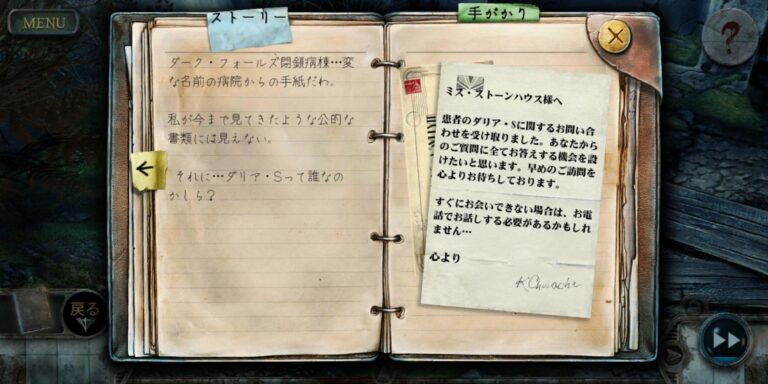 MENU
ストーリー
手がかり
ダーク・フォールズ閉鎖病棟…変
な名前の病院からの手紙だわ。
私が今まで見てきたような公的な
書類には見えない。
それに…ダリア・Sって誰なの
かしら?
ミス・ストーンハウス様へ
患者のダリア・Sに関するお問い合
わせを受け取りました。あなたから
のご質問に全てお答えする機会を設
けたいと思います。早めのご訪問を
心よりお待ちしております。
すぐにお会いできない場合は、お電
話でお話しする必要があるかもしれ
ません…
心より
戻る